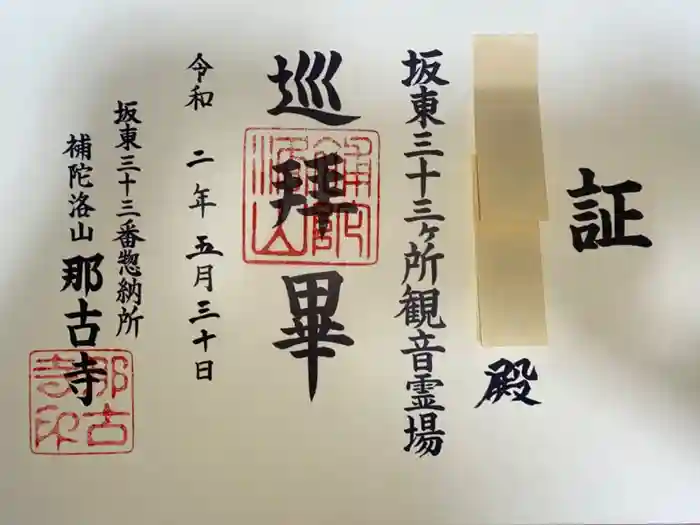 証
殿
坂東三十三ヶ所観音霊場
巡拝畢
令和二年五月三十日
坂東三十三番惣納所
補陀洛山那古寺
補陀洛山
那古寺印